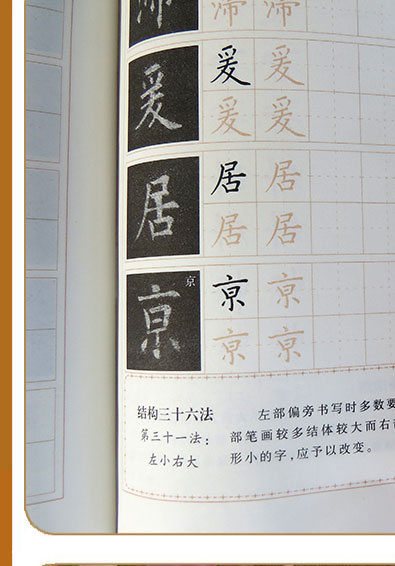 爰 爰 爰
爰 爰
居 居 居
居 居
亰 京 亰 亰
亰 亰
结构三十六法
第三十一法：
左小右大
左部偏旁书写时多数要
部笔画较多结体较大而右
形小的字,应予以改变。